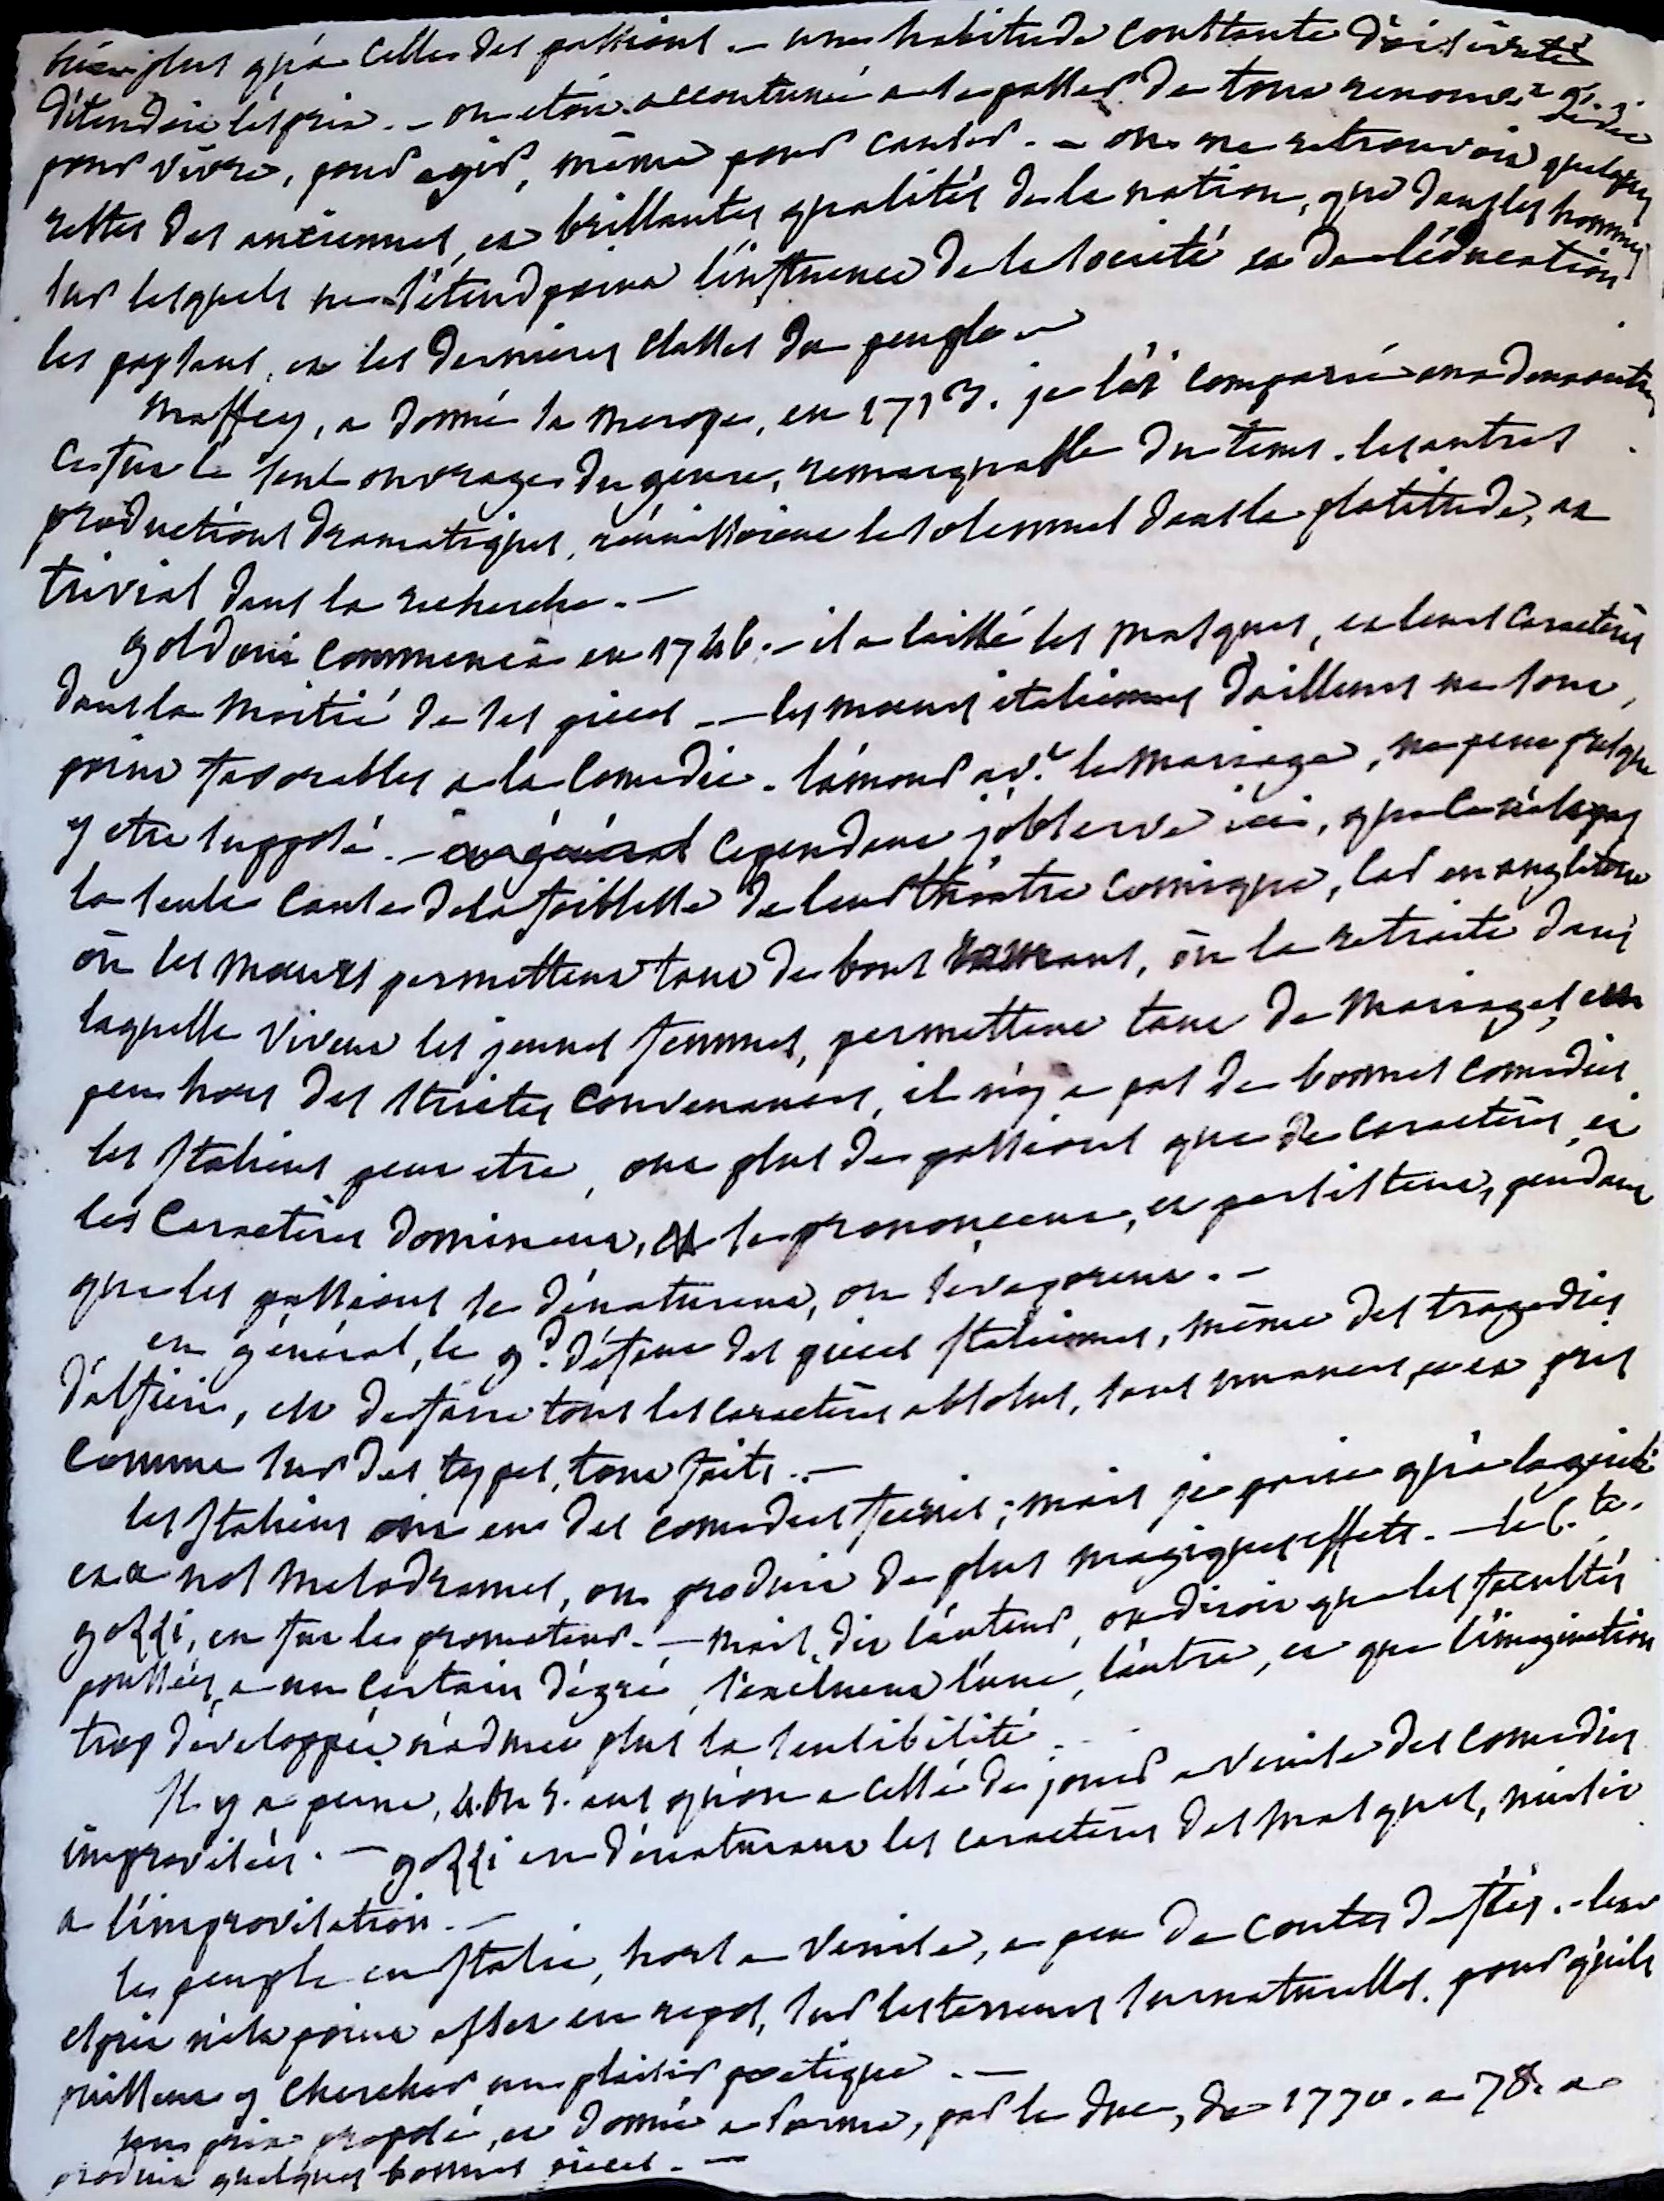 bien plus qu'a celles des passions. — une habitude constante d'oisiveté
d'etendoit l'esprit. — on etoit accoutumé a se passer de tout renouv.
pour vivre, pour agir, même pour causer. — on ne retrouvoit quelques
restes des anciennes, et brillantes qualités de la nation, que dans les hommes
sur lesquels ne s'étend point l'influence de la société et de l'éducation
les paysans, et les dernieres classes du peuple —
Maffey, a donné sa merope, en 1713. je l'ai comparé aux deux autres
ce fut le seul ouvrage du genre, remarquable du tems. les autres
productions dramatiques, réunissoient le solemnel dans la platitude, et
trivial dans la recherche. —
goldoni commença en 1746. — il a laissé les masques, et leurs caractères
dans la moitié de ses pieces — les mœurs italiennes d'ailleurs ne sont,
point favorables a la comedie. l'amour av.t le mariage, ne peut presque
y etre supposé. — en général cependant j'observe ici, que ce n'est pas
la seule cause de la foiblesse de leur théatre comique, car en angleterre
où les mœurs permettent tant de bons romans, où la retraite dans
laquelle vivent les jeunes femmes, permettent tant de mariages, un
peu hors des strictes convenances, il n'y a pas de bonnes comedies
les Italiens peut etre, ont plus de passions que de caractères, et
les caractères dominent, et se prononcent, et persistent, pendant
que les passions se dénaturent, ou s'évaporent. —
en général, le g.d défaut des pieces Italiennes, même des tragedies
d'alfieri, est de faire tous les caracteres absolus, sans nuances, et pris
comme sur des types, tout faits. —
les Italiens ont eu des comedies féeries; mais je pense qu'a la gaieté
et a nos melodrames, on produit de plus magiques effets. — le C.te
gozzi, en fut le promoteur. — mais, dit l'auteur, on diroit que les facultés
poussées, a un certain dégré, s'excluent l'une, l'autre, et que l'imagination
trop développée n'admet plus la sensibilité.
Il y a peine, 4. ou 5. ans qu'on a cessé de jouer a Venise des comedies
improvisées. — gozzi en dénaturant les caractères des masques, nuisit
a l'improvisation. —
le peuple en Italie, hors a Venise, a peu de contes de fées. — leur
esprit n'est point assez en repos, sur les terreurs surnaturelles, pour qu'ils
puissent y chercher un plaisir poetique. —
un prix proposé, et donné a Parme, par le duc, de 1770. a 78. a
produit quelques bonnes pieces. —